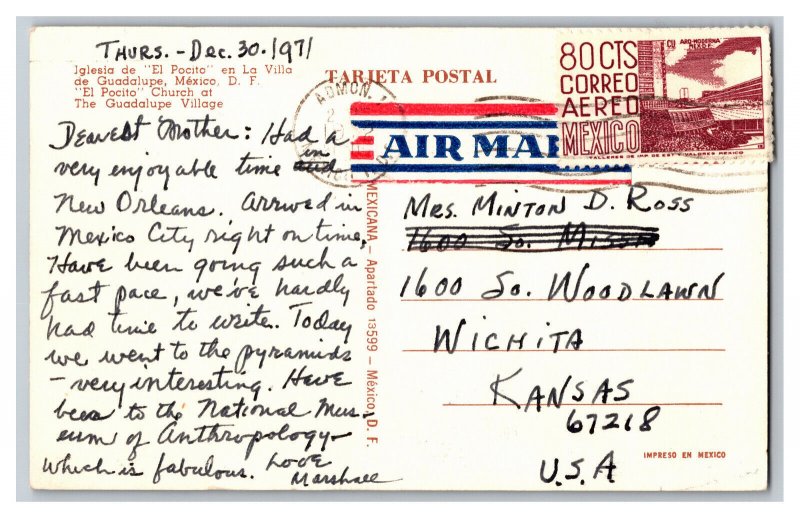 THURS. - Dec. 30. 1971
Iglesia de "El Pocito" en La Villa
de Guadalupe, México, D. F.
"El Pocito" Church at
The Guadalupe Village
TARJETA POSTAL
Dearest Mother: Had a
very enjoyable time and in
New Orleans. Arrived in
Mexico City right on time.
Have been going such a
fast pace, we've hardly
had time to write. Today
we went to the pyramids
- very interesting. Have
been to the National Mus-
eum of Anthropology -
which is fabulous. Love
Marshall
MEXICANA - Apartado 13599 - México, D. F.
ADMON.
AIR MA
80 CTS
CORREO
AEREO
MEXICO
CU ARQ-MODERNA
MEX. D.F.
TALLERES DE IMP. DE EST. Y VALORES MEXICO
MRS. MINTON D. ROSS
1600 So.
1600 So. WOODLAWN
WICHITA
KANSAS
67218
U.S.A
IMPRESO EN MEXICO